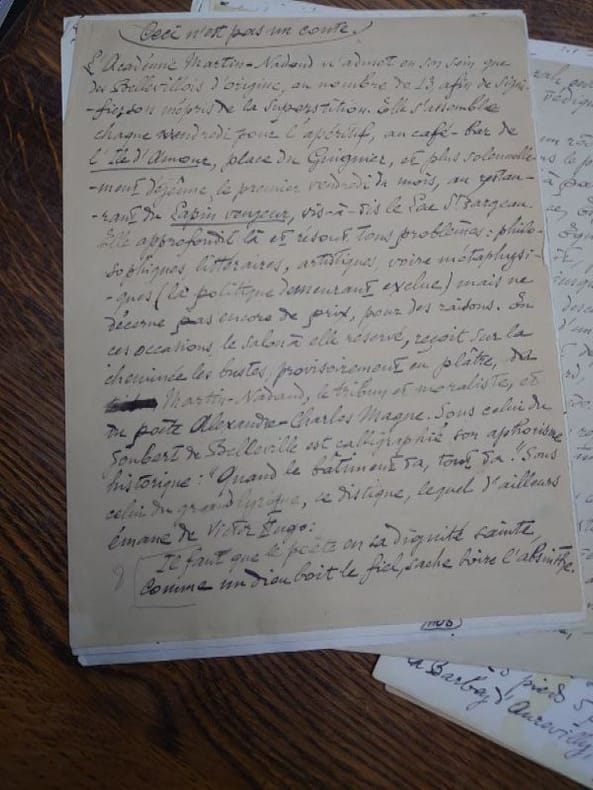 Ceci n'est pas un conte.
L'Académie Martin-Nadaud n'admet en son sein que
des Bellevillois d'origine, au nombre de 13 afin de signi-
-fier son mépris de la superstition. Elle s'assemble
chaque vendredi pour l'apéritif, au café-bar de
l'Ile d'Amour, place du Guignier, et plus solennelle-
-ment déjeune, le premier vendredi du mois, au restau-
-rant du Lapin vengeur, vis-à-vis le Lac St Fargeau.
Elle approfondit là et résout tous problèmes : philo-
sophiques, littéraires, artistiques, voire métaphysi-
-ques (la politique demeurant exclue) mais ne
décerne pas encore de prix, pour des raisons. En
ces occasions, le salon à elle réservé, reçoit sur la
cheminée les bustes, provisoirement en plâtre, de
Martin-Nadaud, le tribun et moraliste, et
du poète Alexandre-Charles Magne. Sous celui du
Joubert de Belleville est calligraphié son aphorisme
historique : "Quand le bâtiment va, tout va." Sous
celui du grand lyrique, ce distique, lequel d'ailleurs
émane de Victor Hugo :
Il faut que le poète en sa dignité sainte,
Comme un dieu boit le fiel, sache boire l'absinthe.
5 pieds 5
Barbey d'Aurevilly,